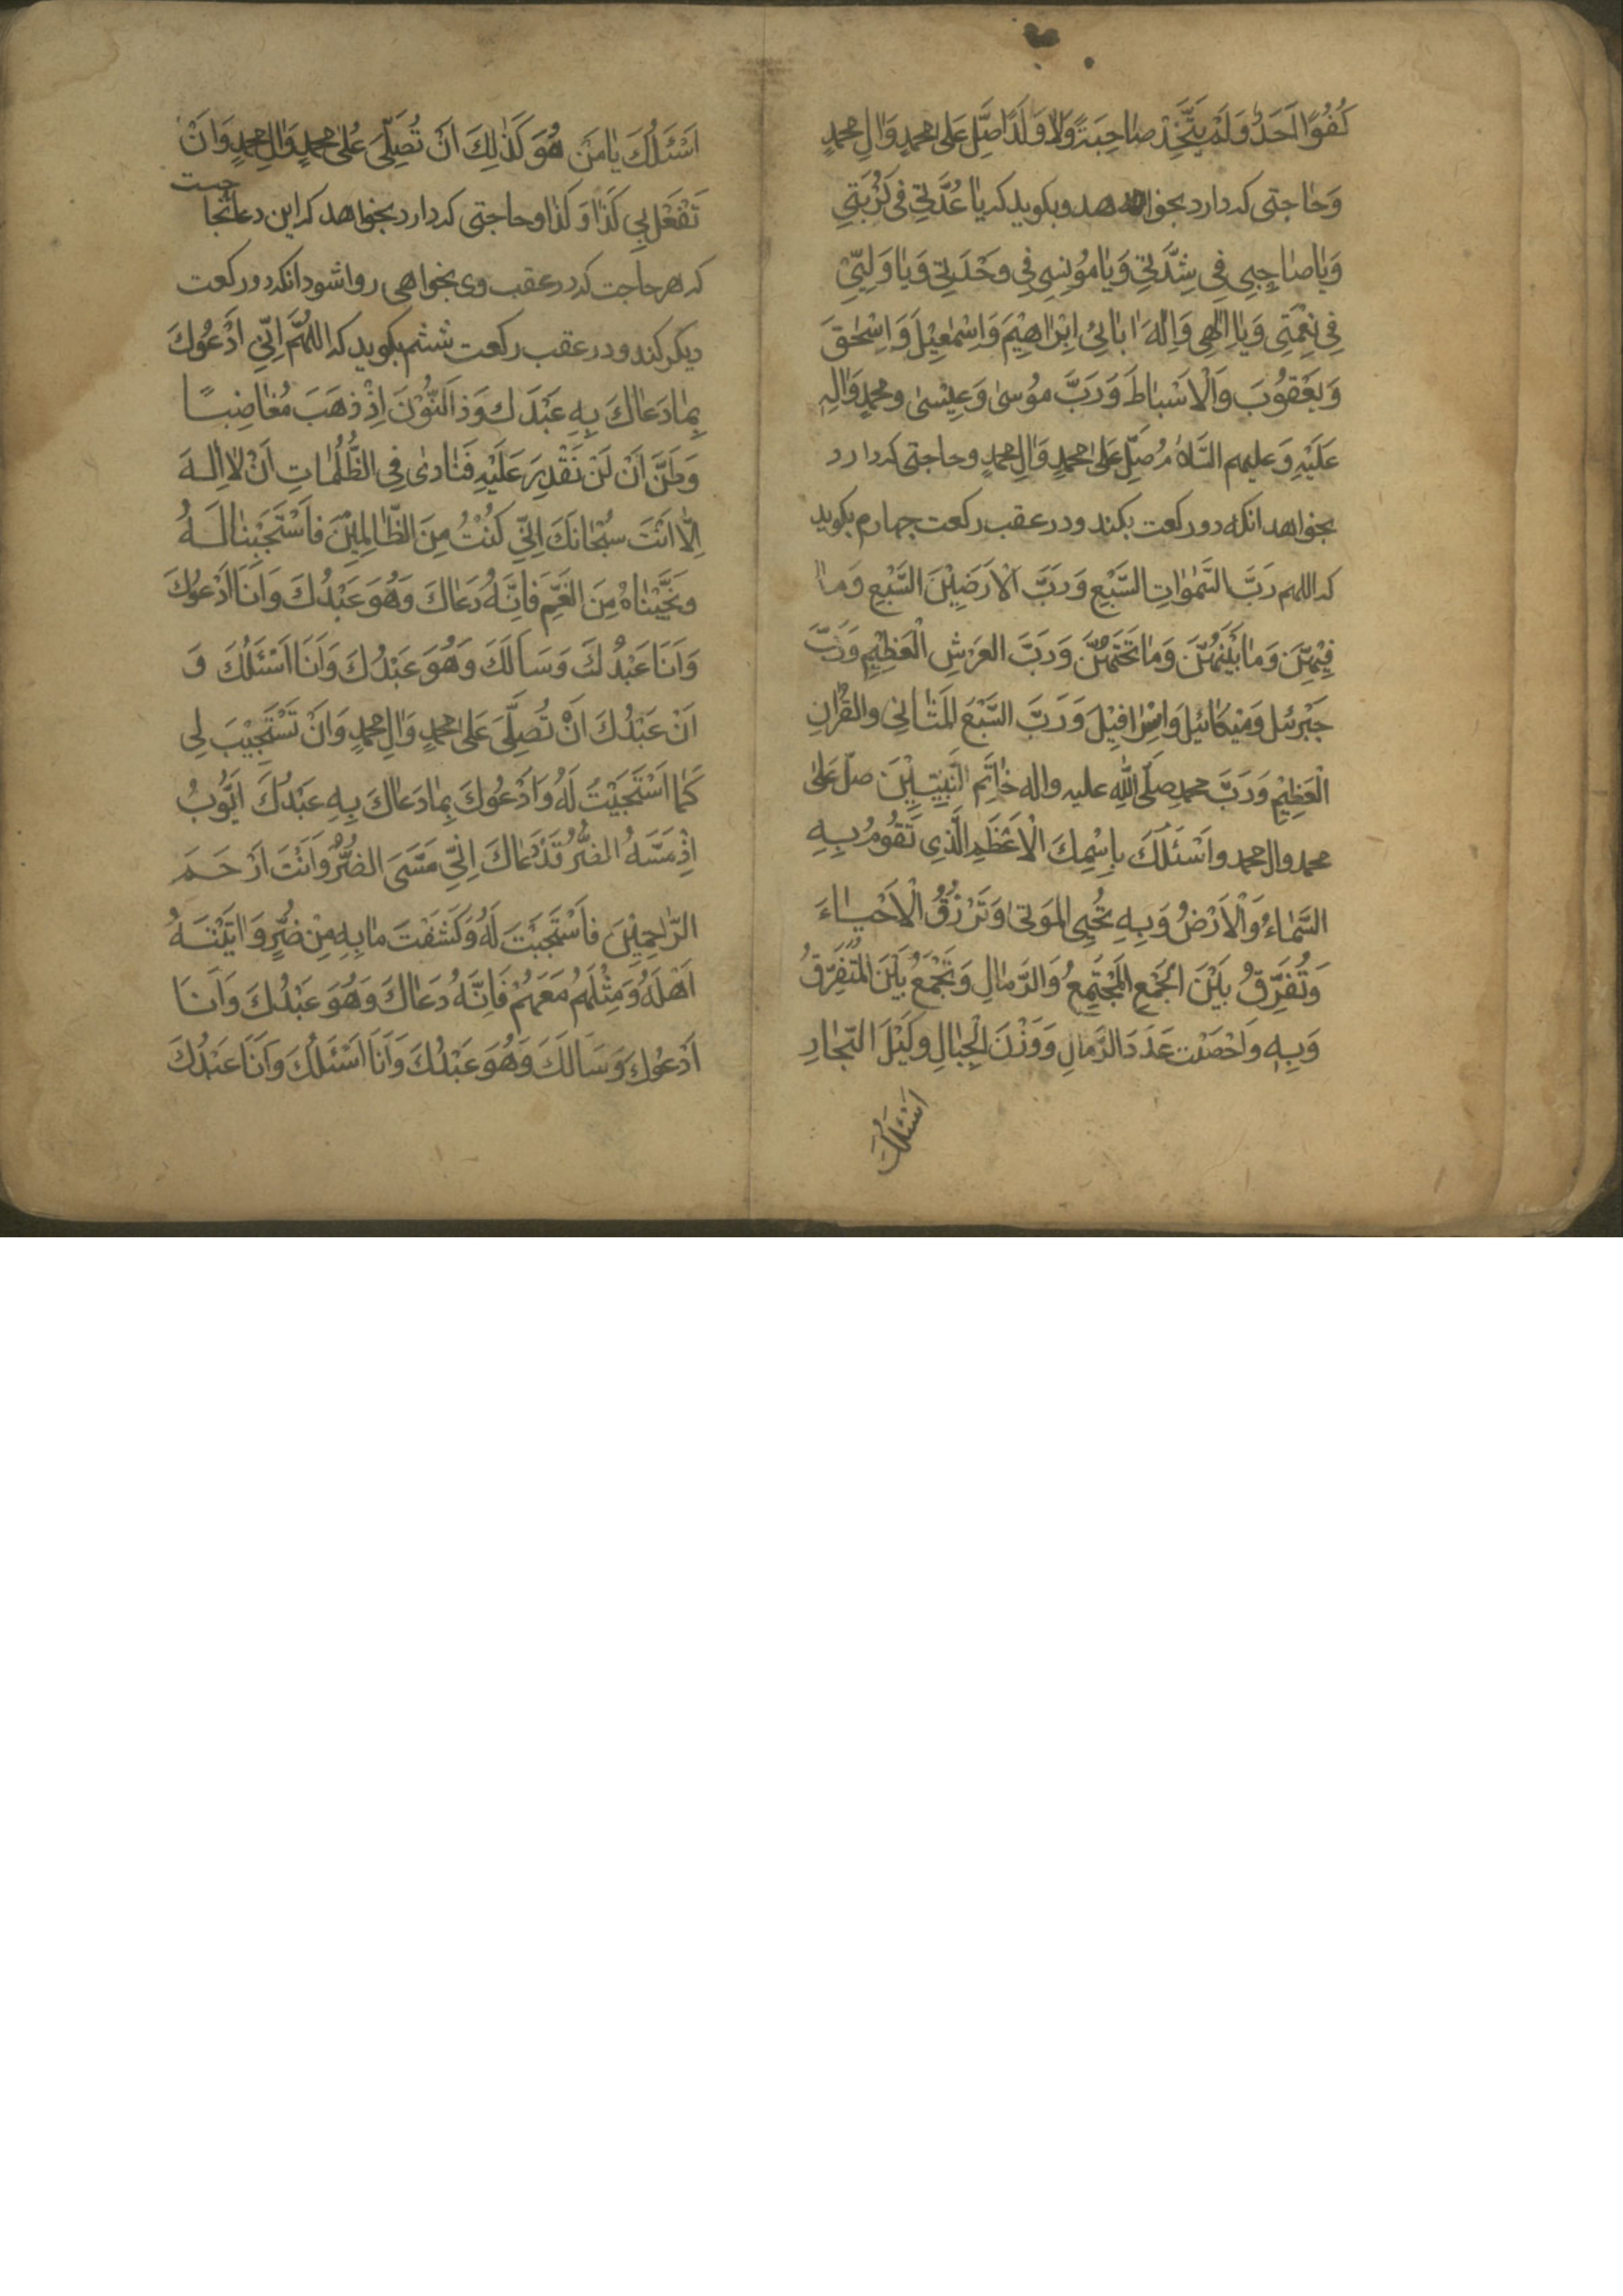 كُفُوًا اَحَدٌ وَلَمْ يَتَّخِذْ صٰاحِبَةً وَلٰا وَلَدًا صَلِّ عَلٰى محمدٍ وَاٰلِ محمدٍ
وَحٰاجتى كه دارد بخواهد وبكويد كه يٰا عُدَّتِي فى كُرْبَتِي
وَيٰا صٰاحِبِي فِي شِدَّتِي وَيٰا مُونِسِي فِي وَحْدَتِي وَيٰا وَلِيِّي
فِي نِعْمَتِي وَيٰا اِلٰهِي وَاِلٰهَ اٰبٰائِى اِبْرٰاهِيْمَ وَاِسْمٰعِيْلَ وَاِسْحٰقَ
وَيَعْقُوْبَ وَالْاَسْبٰاطَ وَرَبَّ مُوسىٰ وَعِيْسىٰ ومحمدٍ وَاٰلِهِ
عَلَيْهِ وَعليهم السَّلٰامُ صَلِّ عَلٰى محمدٍ وَاٰلِ محمدٍ وحاجتى كه دارد
بخواهد انكه دو ركعت بكند ودر عقب ركعت چهارم بكويد
كه اللهم رَبَّ السَّمٰوٰاتِ السَّبْعِ وَرَبَّ الْاَرَضِيْنَ السَّبْعِ وَمٰا
فِيْهِنَّ وَمٰا بَيْنَهُنَّ وَمٰا تَحْتَهُنَّ وَرَبَّ العَرْشِ الْعَظِيْمِ وَرَبَّ
جَبْرئيل وَمِيْكٰائيلَ وَاِسْرٰافِيْلَ وَرَبَّ السَّبْعَ الْمَثٰانِى والقُرْاٰنِ
الْعَظِيْمِ وَرَبَّ محمدٍ صَلَّى اللّٰهِ عليه واله خٰاتَمِ النَّبِيّيْنَ صلّ عَلٰى
محمد وال محمد واَسْئَلُكَ بِاسْمِكَ الْاَعْظَمِ الَّذِى تَقُومُ بِهِ
السَّمٰاءُ وَالْاَرْضُ وَبِهِ تُحْيِى المَوْتىٰ وَتَرْزُقُ الْاَحْيٰاءَ
وَتُفَرِّقُ بَيْنَ الْجَمْعِ الْمُجْتَمِعُ وَالرِّمٰالِ وَتَجْمَعُ بَيْنَ الْمُتَفَرِّقُ
وَبِهِ وَاَحْصَيْتَ عَدَدَ الرِّمالِ وَوَزْنَ الْجِبٰالِ وكَيْلَ البِحٰارِ
اَسْئَلُكَ
اَسْئَلُكَ يٰا مَنْ هُوَ كَذٰلِكَ اَنْ تُصَلِّىَ عَلٰى محمدٍ وَاٰلِ محمدٍ وَاَنْ
تَفْعَلَ بِي كَذٰا وَكَذٰا وحاجتى كه دارد بخواهد كه اين دعا نجا
حيست
كه هر حاجت كه در عقب وى بخواهى روا شود انكه دو ركعت
ديكر كند ودر عقب ركعت ششم بكويد كه اللّٰهُمَّ اِنِّي اَدْعُوكَ
بِمٰا دَعٰاكَ بِهِ عَبْدَك وَذٰالنُّوْنَ اِذْ ذَهَبَ مُغٰاضِبًا
وَظَنَّ اَنْ لَنْ نَقْدِرَ عَلَيْهِ فَنٰادىٰ فِى الظُّلُمٰاتِ اَنْ لٰا اِلٰهَ
اِلّٰا اَنْتَ سُبْحٰانَكَ اِنّى كُنْتُ مِنَ الظّٰالِمِيْنَ فَاسْتَجَبْنٰا لَهُ
وَنَجَّيْنٰاهُ مِنَ الْغَمِّ فَاِنَّهُ دَعٰاكَ وَهُوَ عَبْدُكَ وَاَنَا اَدْعُوكَ
وَاَنَا عَبْدُكَ وَسَاَلَكَ وَهُوَ عَبْدُكَ وَاَنَا اَسْئَلُكَ وَ
اَنْ عَبْدُكَ اَنْ تُصَلِّىَ عَلٰى محمدٍ وَاٰلِ محمدٍ وَاَنْ تَسْتَجِيْبَ لِى
كَمٰا اسْتَجَبْتَ لَهُ وَاَدْعُوكَ بِمٰا دَعٰاكَ بِهِ عَبْدُكَ اَيُّوْبُ
اِذْ مَسَّهُ الضُّرُّ فَدَعٰاكَ اِنِّى مَسَّنِىَ الضُّرُّ وَاَنْتَ اَرْحَمَ
الرّٰاحِمِيْنَ فَاسْتَجَبْتَ لَهُ وَكَشَفْتَ مٰا بِهِ مِنْ ضُرٍّ وَاٰتَيْتَهُ
اَهْلَهُ وَمِثْلَهُمْ مَعَهُمْ فَاِنَّهُ دَعٰاكَ وَهُوَ عَبْدُكَ وَاَنَا
اَدْعُوكَ وَسَاَلَكَ وَهُوَ عَبْدُكَ وَاَنَا اَسْئَلُكَ وَاَنَا عَبْدُكَ